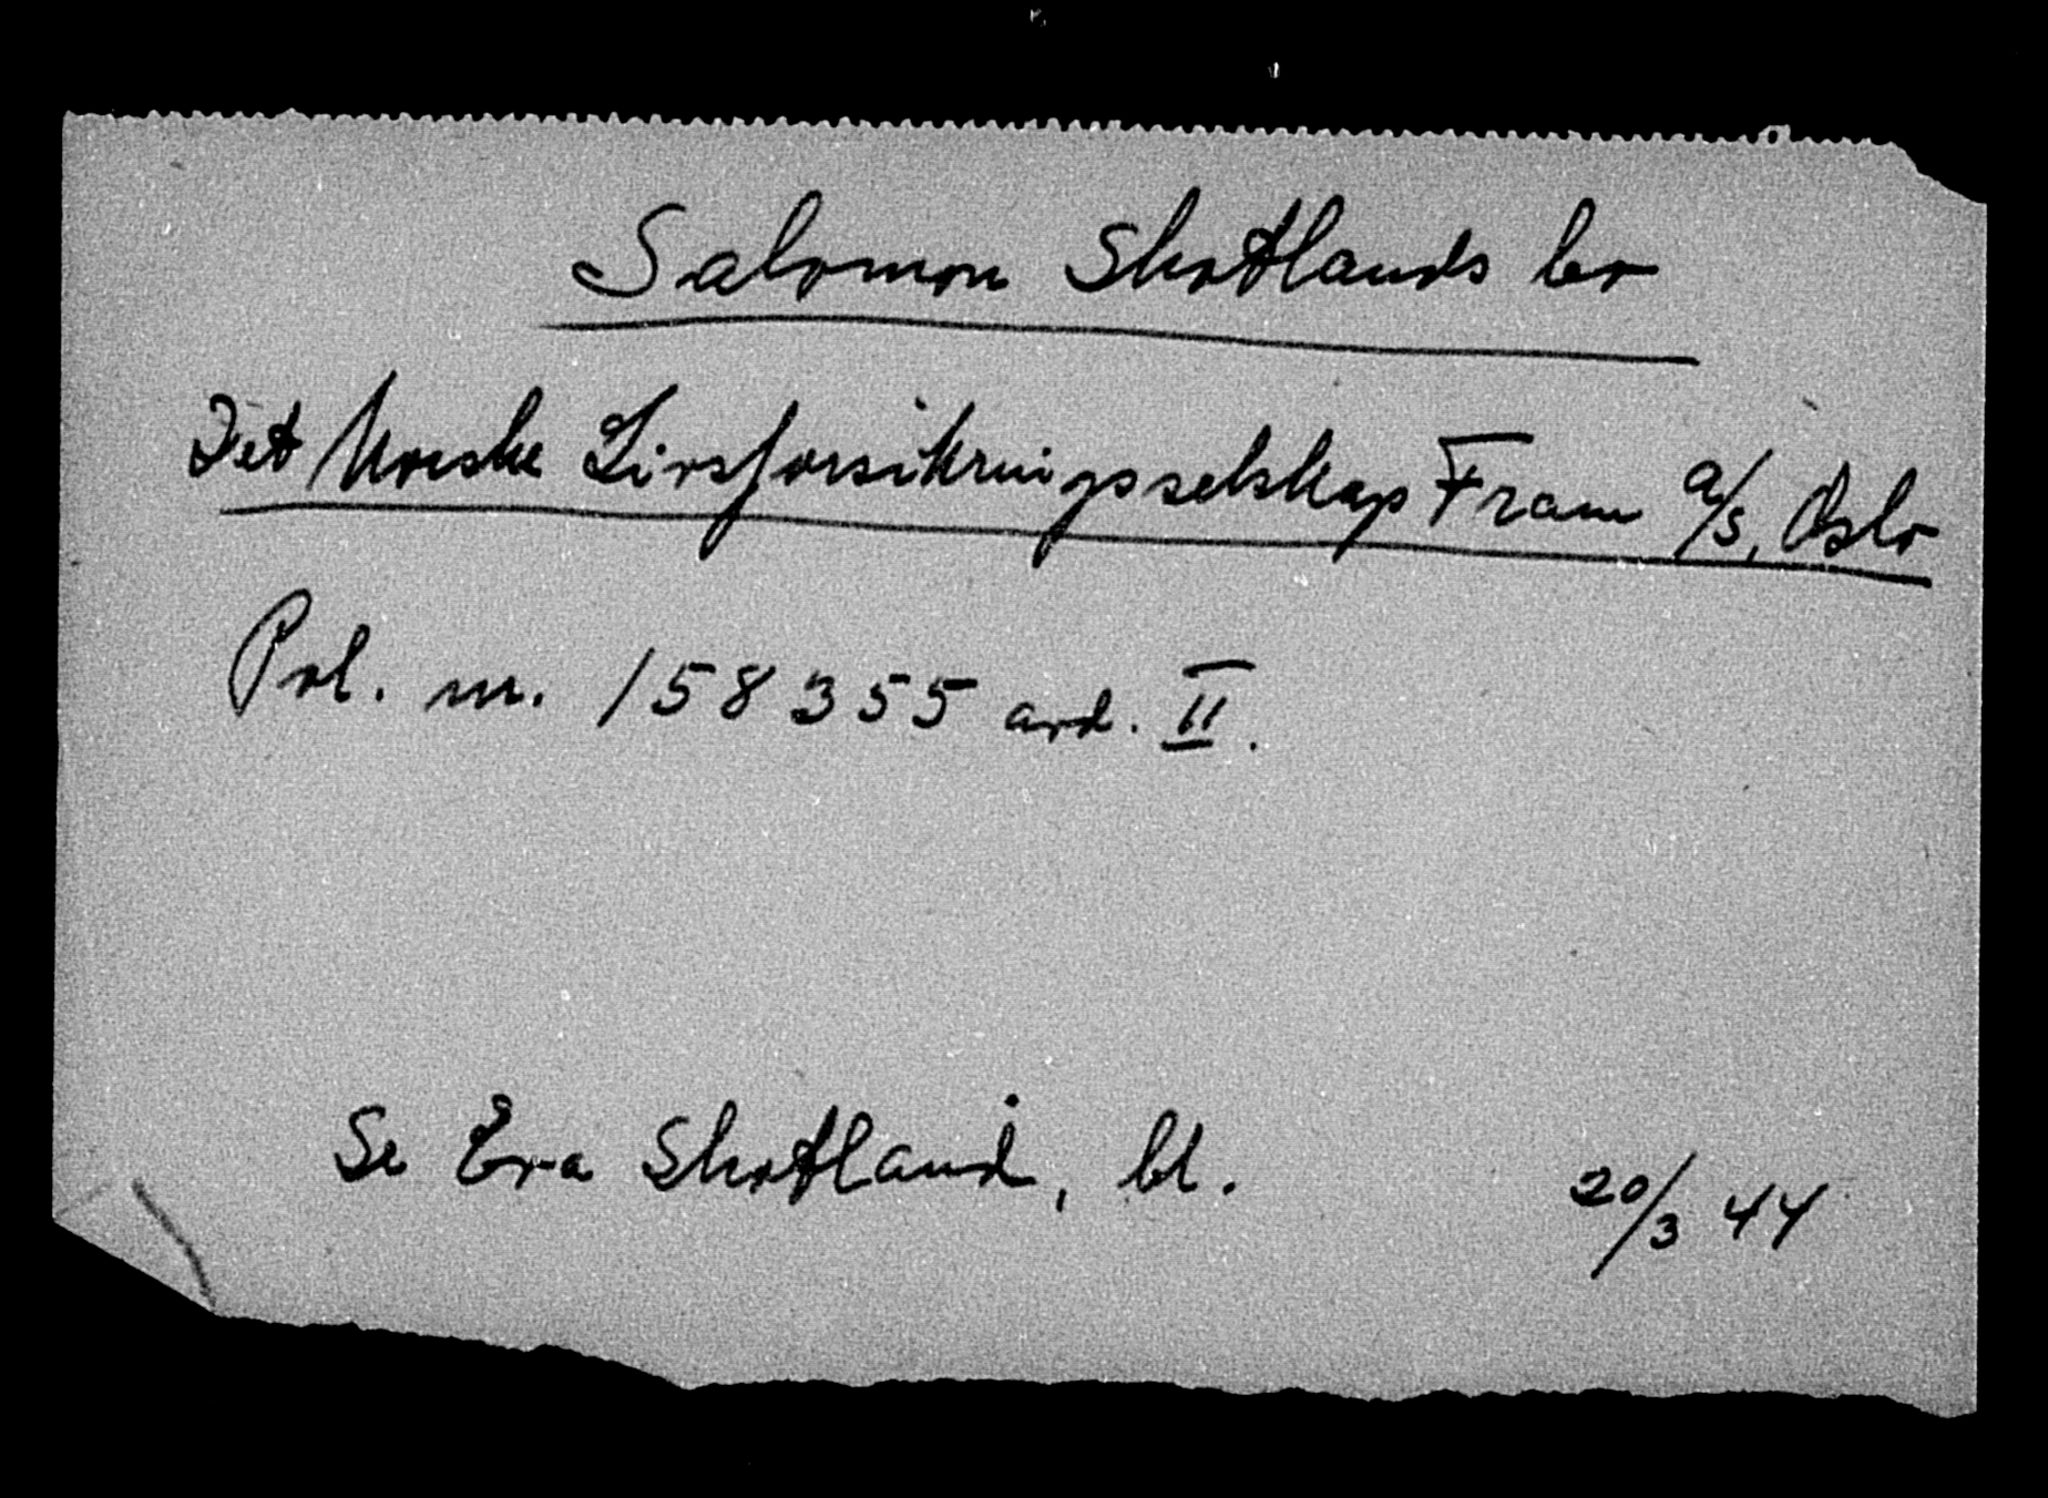 Salomon Shotlands bo
Det Norske Livsforsikringsselskap Fram a/s, Oslo
Pol. nr. 158355 avd. II.
Se Eva Shotland, bl.
20/3 44